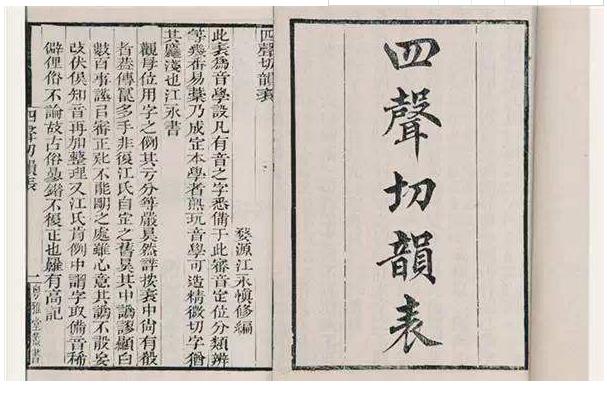 四聲切韻表
四聲切韻表
婺源江永慎修編
此表為音學設凡有音之字悉備于此審音定位分類辨
等幾番易藁乃成定本學者熟玩音學可造精微切字猶
其麤淺也江永書
觀母位用字之例其分等嚴矣然諦按表中尚有殽
者葢傳寫多手非復江氏自定之舊矣其中譌謬顯白
數百事輒㠯審正不能之處雖心意其譌不敢妄
改伏俟知音再加整理又江氏例中謂字取備音稀
僻俚俗不論故古俗不復正也羅有高記
四聲切韻表
一
粵雅堂叢書